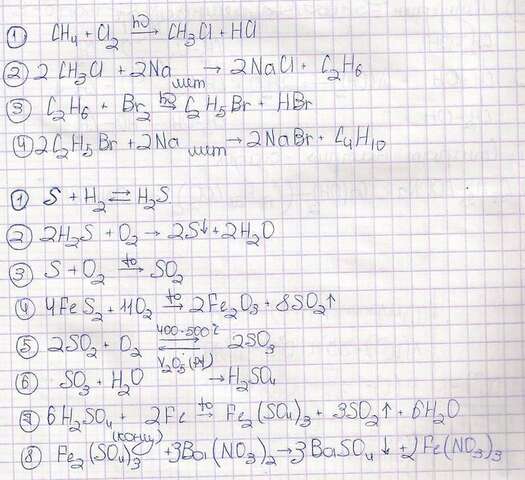 ① CH₄ + Cl₂ →(hν) CH₃Cl + HCl
② 2CH₃Cl + 2Na мет → 2NaCl + C₂H₆
③ C₂H₆ + Br₂ →(hν) C₂H₅Br + HBr
④ 2C₂H₅Br + 2Na мет → 2NaBr + C₄H₁₀
① S + H₂ ⇌ H₂S
② 2H₂S + O₂ → 2S↓ + 2H₂O
③ S + O₂ →(t°) SO₂
④ 4FeS₂ + 11O₂ →(t°) 2Fe₂O₃ + 8SO₂↑
⑤ 2SO₂ + O₂ ⇌(400-500°C, V₂O₅ (Pt)) 2SO₃
⑥ SO₃ + H₂O → H₂SO₄
⑦ 6H₂SO₄ (конц) + 2Fe →(t°) Fe₂(SO₄)₃ + 3SO₂↑ + 6H₂O
⑧ Fe₂(SO₄)₃ + 3Ba(NO₃)₂ → 3BaSO₄↓ + 2Fe(NO₃)₃